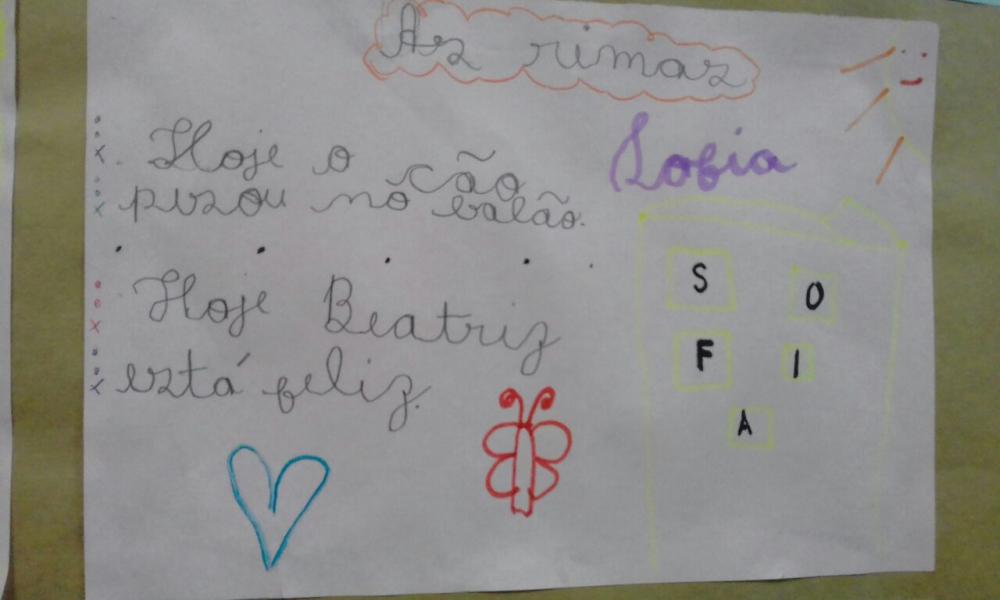 As rimas
Sofia
Hoje o cão
pisou no balão.
Hoje Beatriz
está feliz.
S O
F I
A